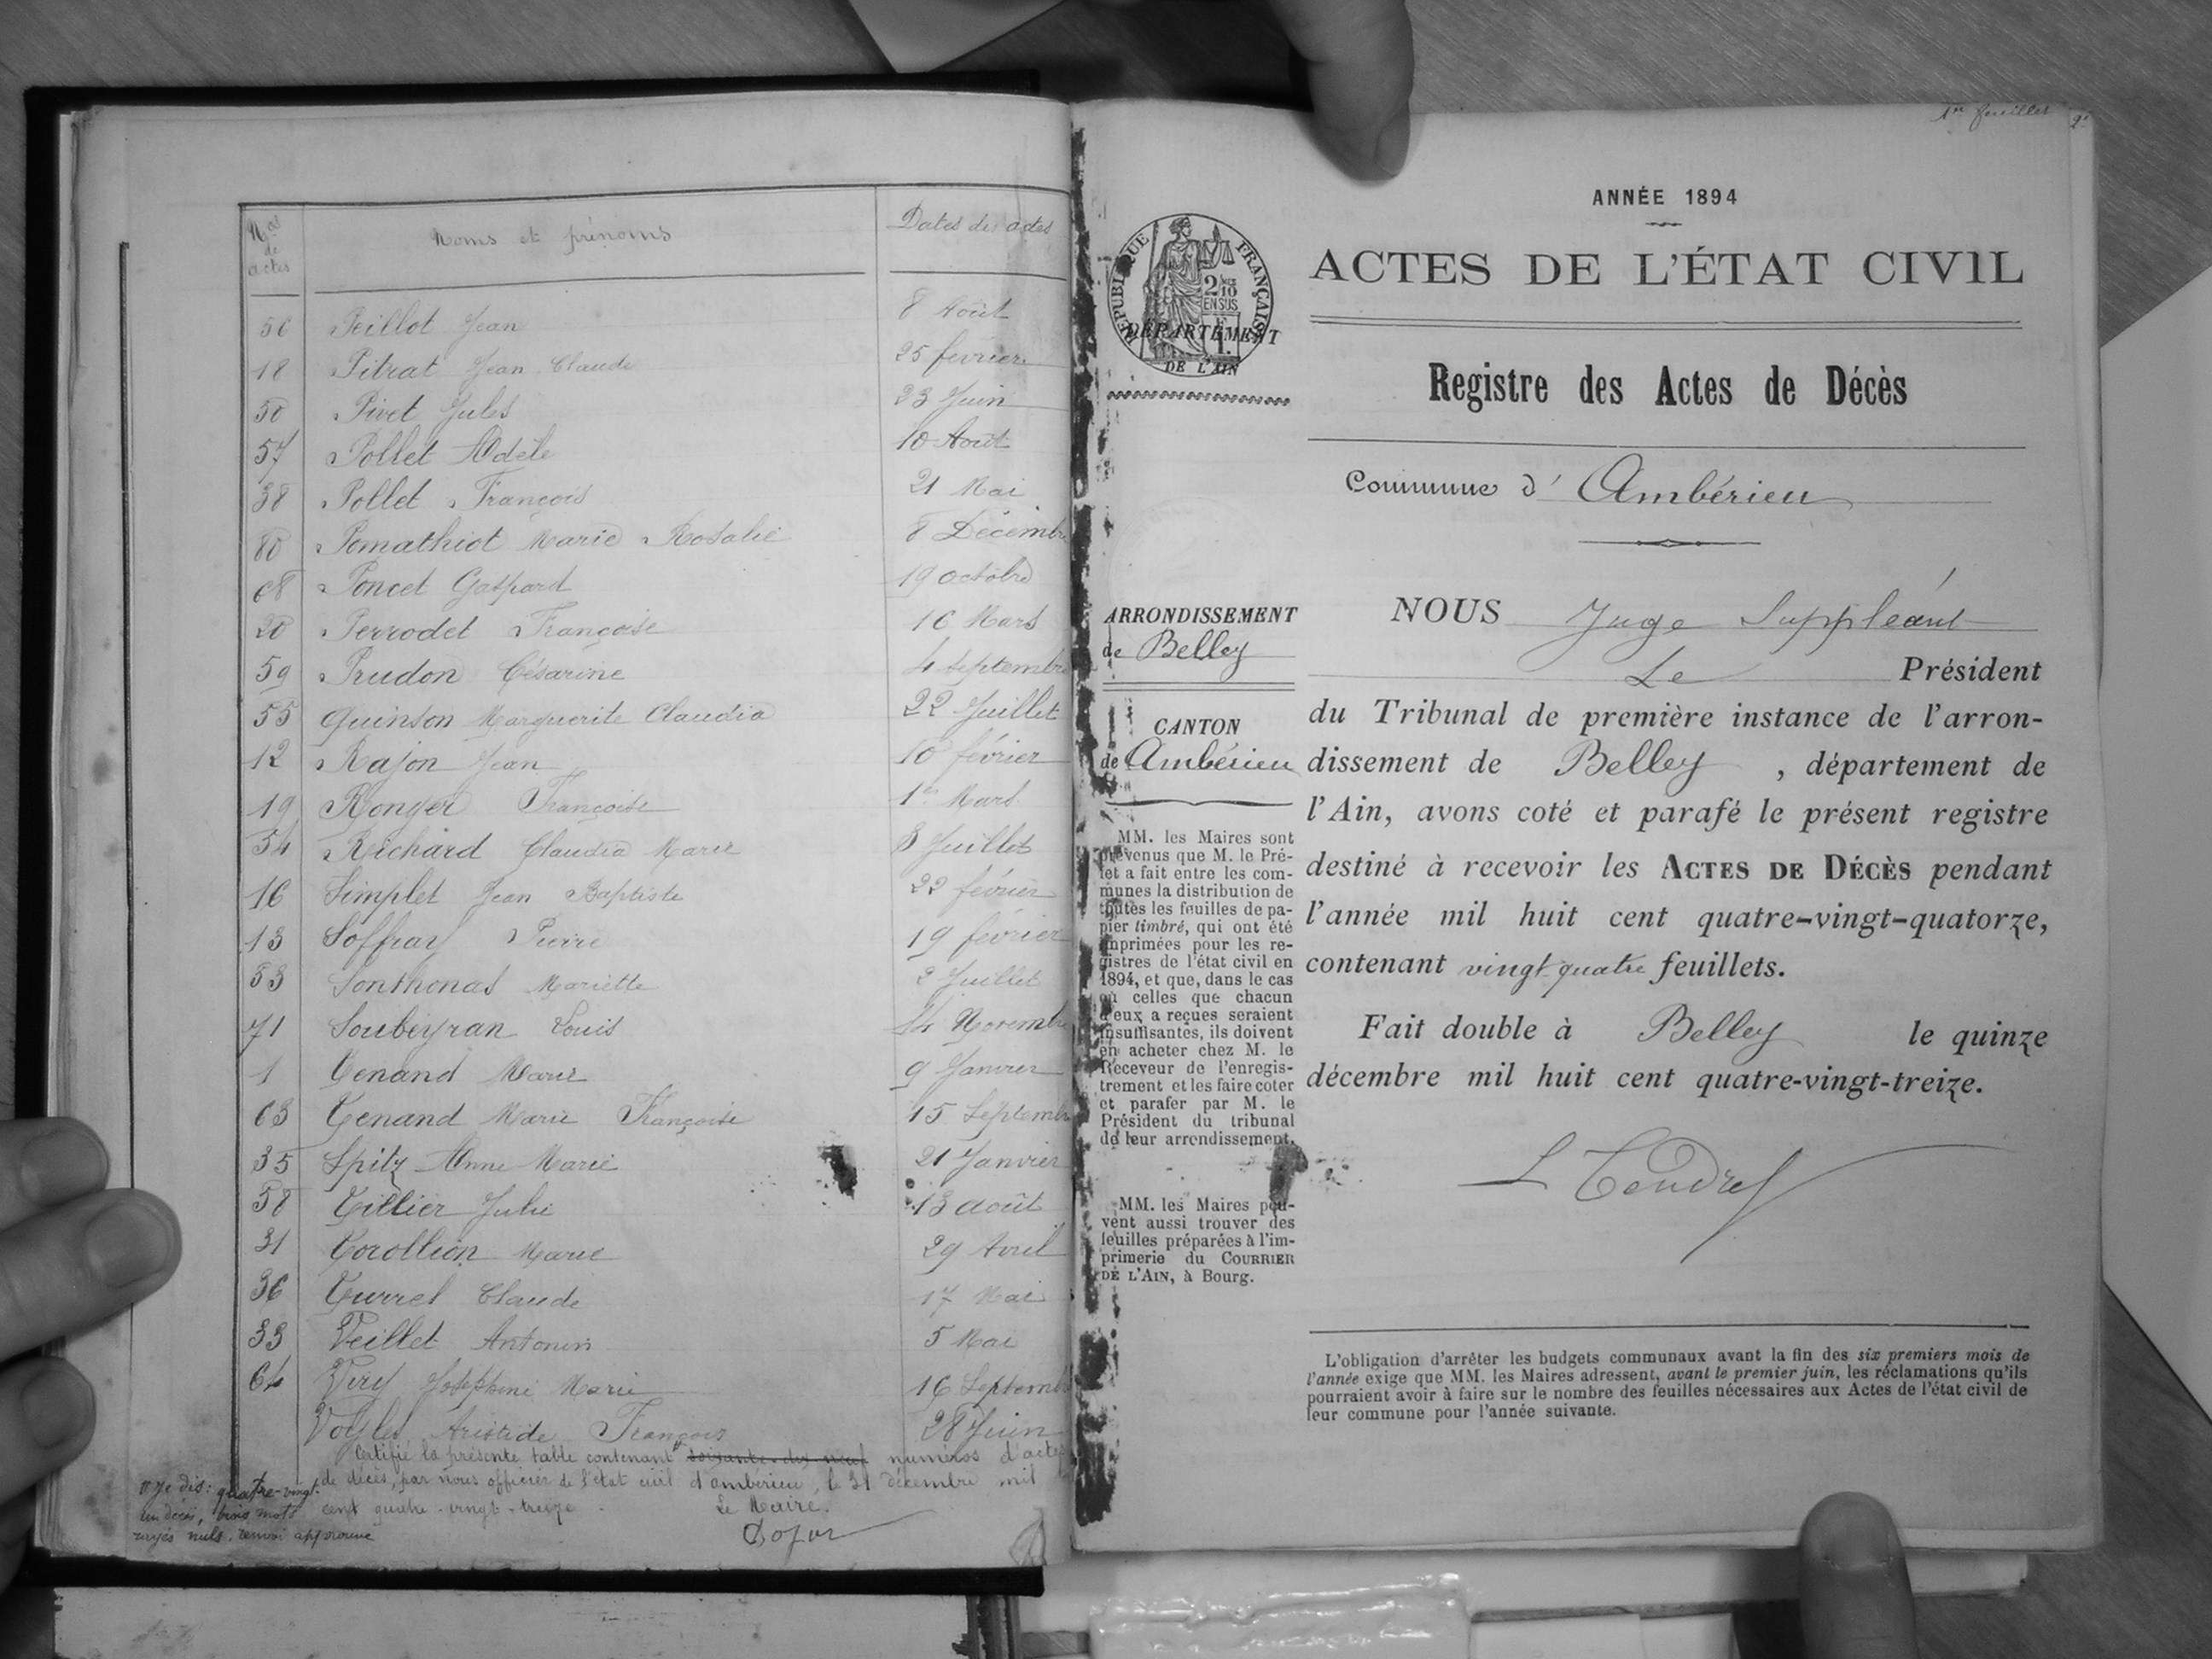 Nos de actes Noms et prénoms Dates des actes
56 Peillot Jean 8 Août
18 Pitrat Jean Claude 25 février
50 Pivet Jules 23 Juin
57 Pollet Adèle 10 Août
38 Pollet François 21 Mai
80 Pomathiot Marie Rosalie 8 Décembre
68 Poncet Gaspard 19 octobre
20 Perrodet Françoise 16 Mars
59 Prudon Césarine 4 Septembre
55 Quinson Marguerite Claudia 22 Juillet
12 Rajon Jean 10 février
19 Ronger Françoise 1er Mars
54 Richard Claudia Marie 8 Juillet
16 Simplet Jean Baptiste 22 février
13 Soffray Pierre 19 février
53 Sonthonas Mariette 2 Juillet
71 Soubeyran Louis 14 Novembre
1 Tenand Marie 9 Janvier
63 Tenand Marie Françoise 15 Septembre
35 Spitz Anne Marie 21 Janvier
58 Tillier Julie 13 août
31 Torollion Marie 29 Avril
36 Turrel Claude 17 Mai
33 Veillet Antonin 5 Mai
64 Very Joséphine Marie 16 Septemb
Aristide François 28 Juin
Certifié la présente table contenant soixante-dix-neuf numéros d'actes
de décès, par nous officier de l'état civil d'ambérieu, le 31 décembre mil
cent quatre-vingt-treize. Le Maire.
quatre-vingt-
un décès, trois mots
rayés nuls. renvoi approuvé
1er feuillet
ANNÉE 1894
ACTES DE L'ÉTAT CIVIL
RÉPUBLIQUE FRANÇAISE
2/10 EN SUS
DÉPARTEMENT
DE L'AIN
Registre des Actes de Décès
Commune d' Ambérieu
ARRONDISSEMENT
de Belley
CANTON
de Ambérieu
MM. les Maires sont
prévenus que M. le Pré-
fet a fait entre les com-
munes la distribution de
toutes les feuilles de pa-
pier timbré, qui ont été
imprimées pour les re-
gistres de l'état civil en
1894, et que, dans le cas
où celles que chacun
d'eux a reçues seraient
insuffisantes, ils doivent
en acheter chez M. le
Receveur de l'enregis-
trement et les faire coter
et parafer par M. le
Président du tribunal
de leur arrondissement.
MM. les Maires peu-
vent aussi trouver des
feuilles préparées à l'im-
primerie du COURRIER
DE L'AIN, à Bourg.
NOUS Juge Suppléant
Le Président
du Tribunal de première instance de l'arron-
dissement de Belley , département de
l'Ain, avons coté et parafé le présent registre
destiné à recevoir les ACTES DE DÉCÈS pendant
l'année mil huit cent quatre-vingt-quatorze,
contenant vingt quatre feuillets.
Fait double à Belley le quinze
décembre mil huit cent quatre-vingt-treize.
L Tendret
L'obligation d'arrêter les budgets communaux avant la fin des six premiers mois de
l'année exige que MM. les Maires adressent, avant le premier juin, les réclamations qu'ils
pourraient avoir à faire sur le nombre des feuilles nécessaires aux Actes de l'état civil de
leur commune pour l'année suivante.